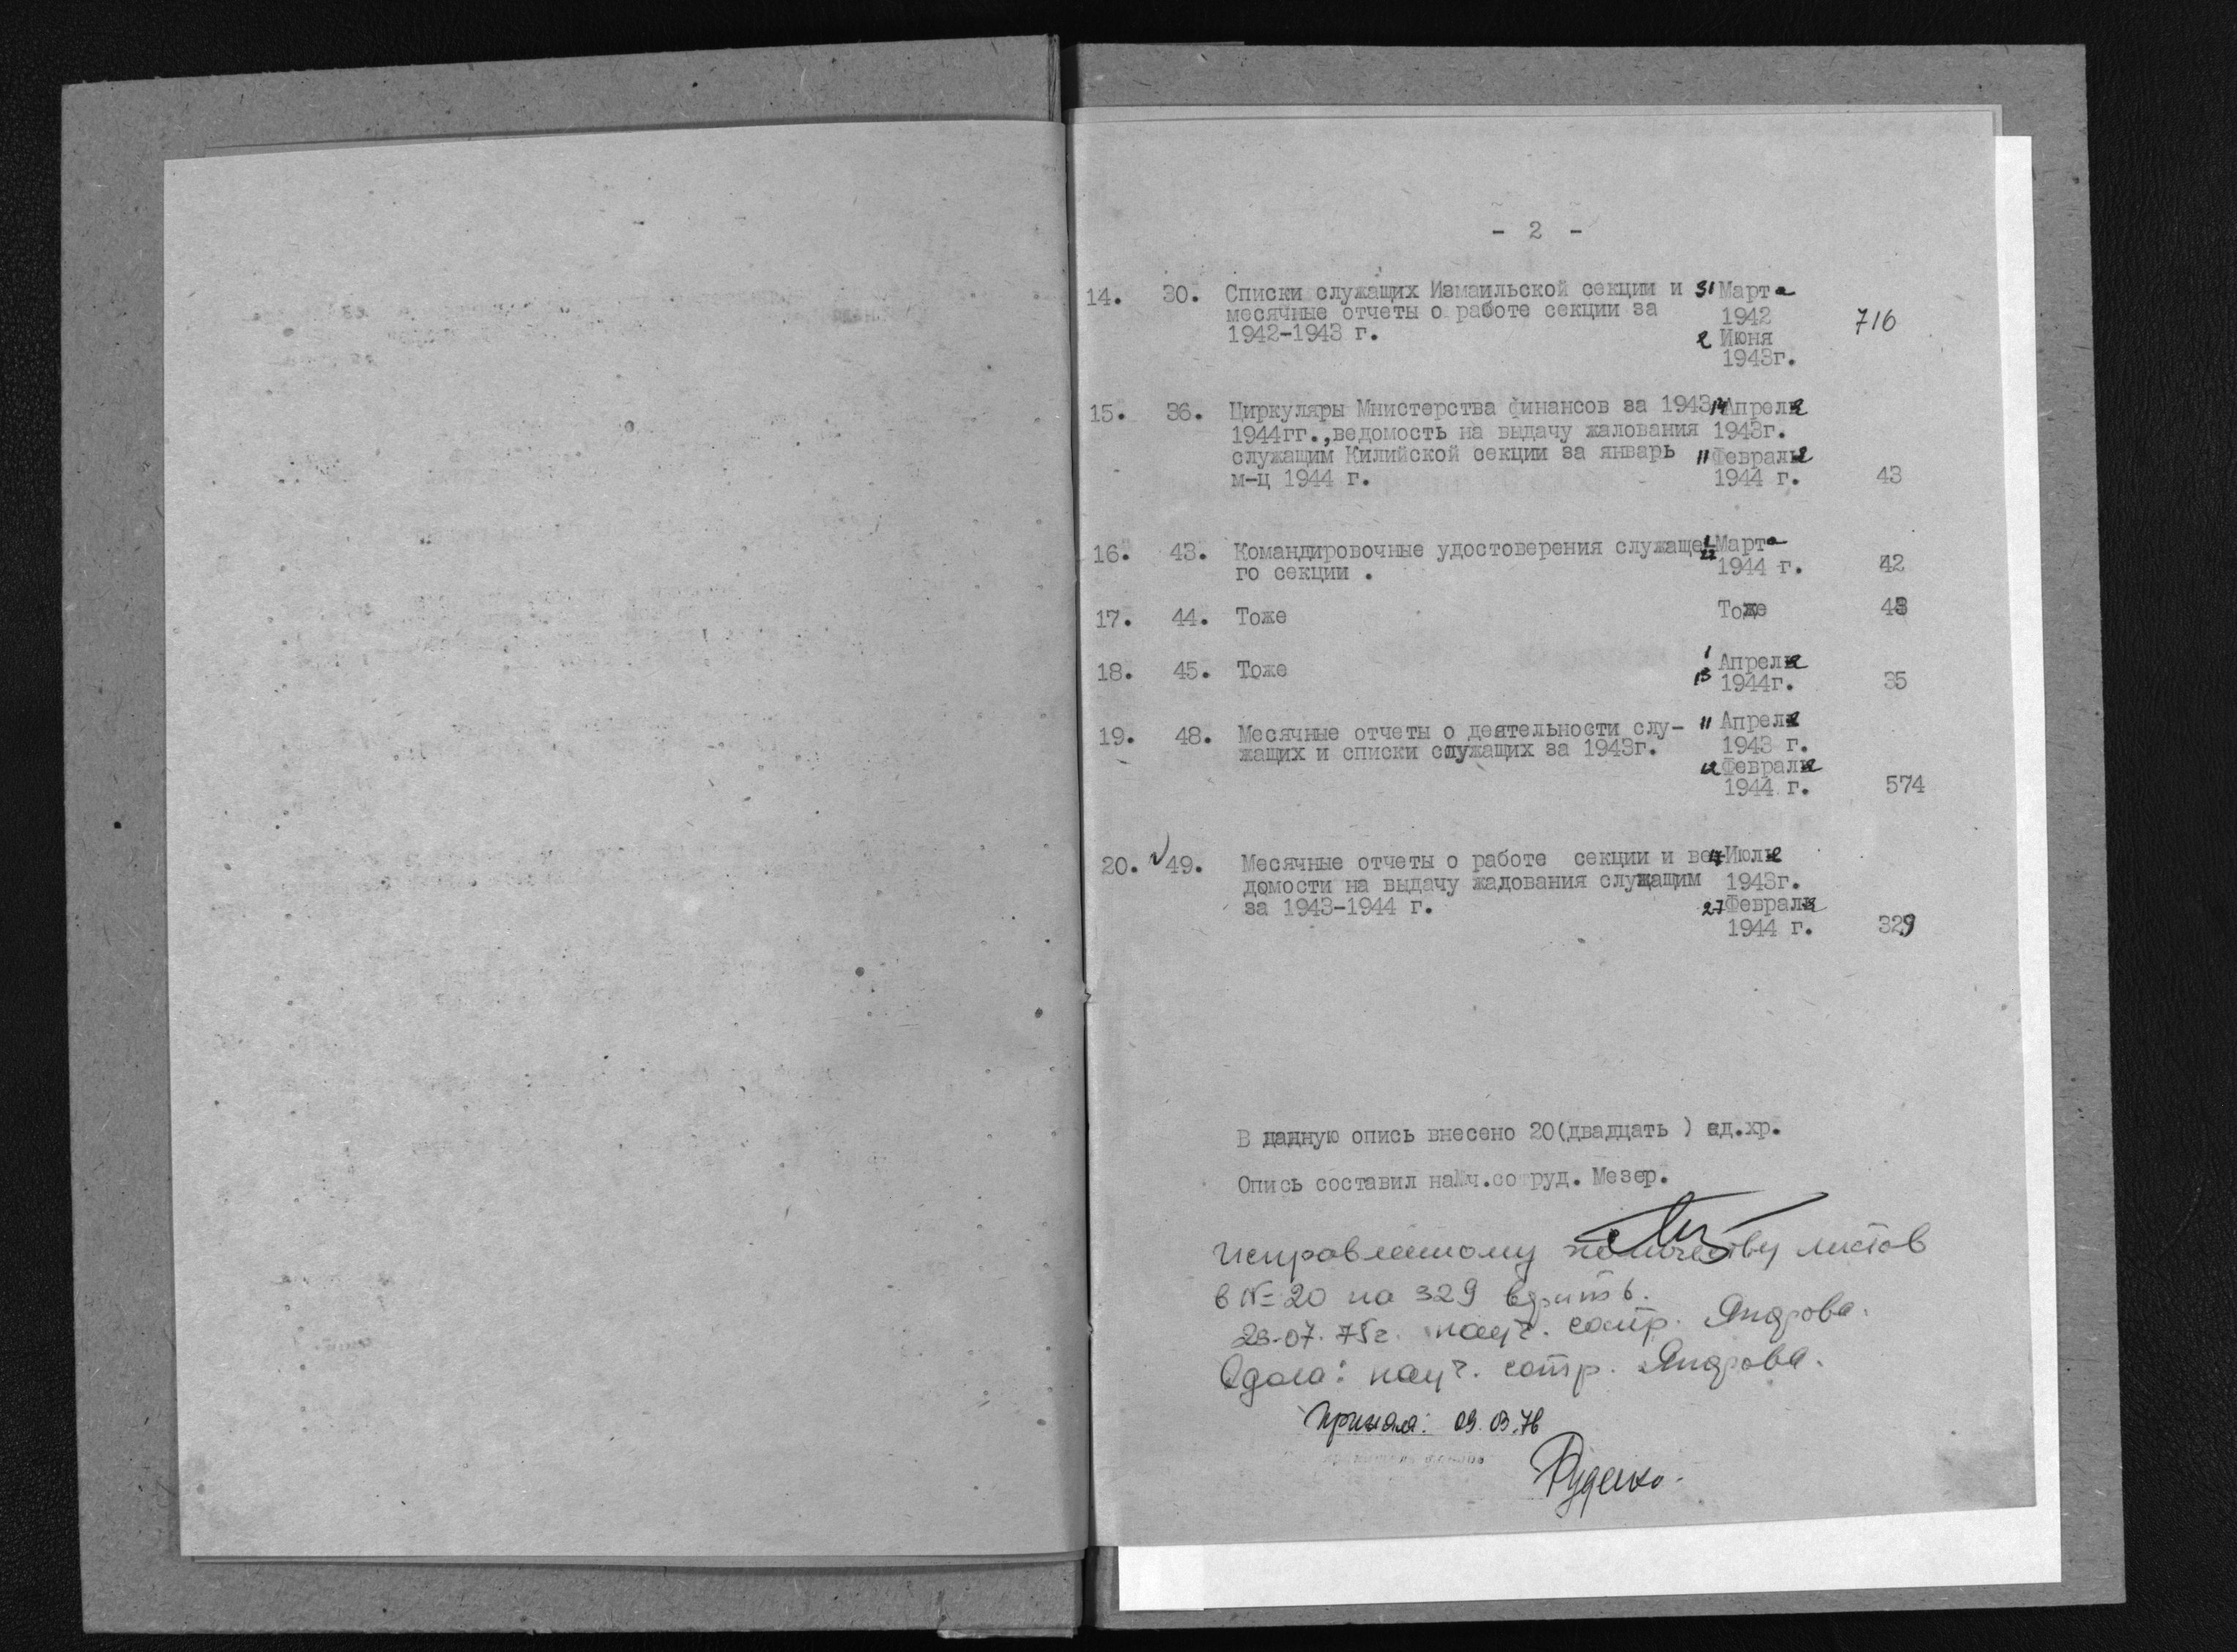 - 2 -
14. 30. Списки служащих Измаильской секции и 31 Марта
месячные отчеты о работе секции за 1942
1942-1943 г. 2 Июня
716
1943г.
15. 36. Циркуляры Мнистерства финансов за 1943 14 Апреля
1944гг.,ведомость на выдачу жалования 1943г.
служащим Килийской секции за январь 11 Февраля
м-ц 1944 г. 1944 г. 43
16. 43. Командировочные удостоверения служаще- 1 Марта
го секции . 22 1944 г. 42
17. 44. Тоже Тоже 43
18. 45. Тоже 1 Апреля
13 1944г. 35
19. 48. Месячные отчеты о деятельности слу- 11 Апреля
жащих и списки служащих за 1943г. 1943 г.
12 Февраля
1944 г. 574
20. √ 49. Месячные отчеты о работе секции и ве- 4 Июля
домости на выдачу жадования служащим 1943г.
за 1943-1944 г. 27 Февраля
1944 г. 329
В данную опись внесено 20(двадцать ) ед.хр.
Опись составил науч.сотруд. Мезер.
Исправленному количеству листов
в № 20 на 329 верить.
28.07.75г. науч. сотр. Яндрова.
Сдала: науч. сотр. Яндрова.
Приняла: 09.03.76
Руденко.